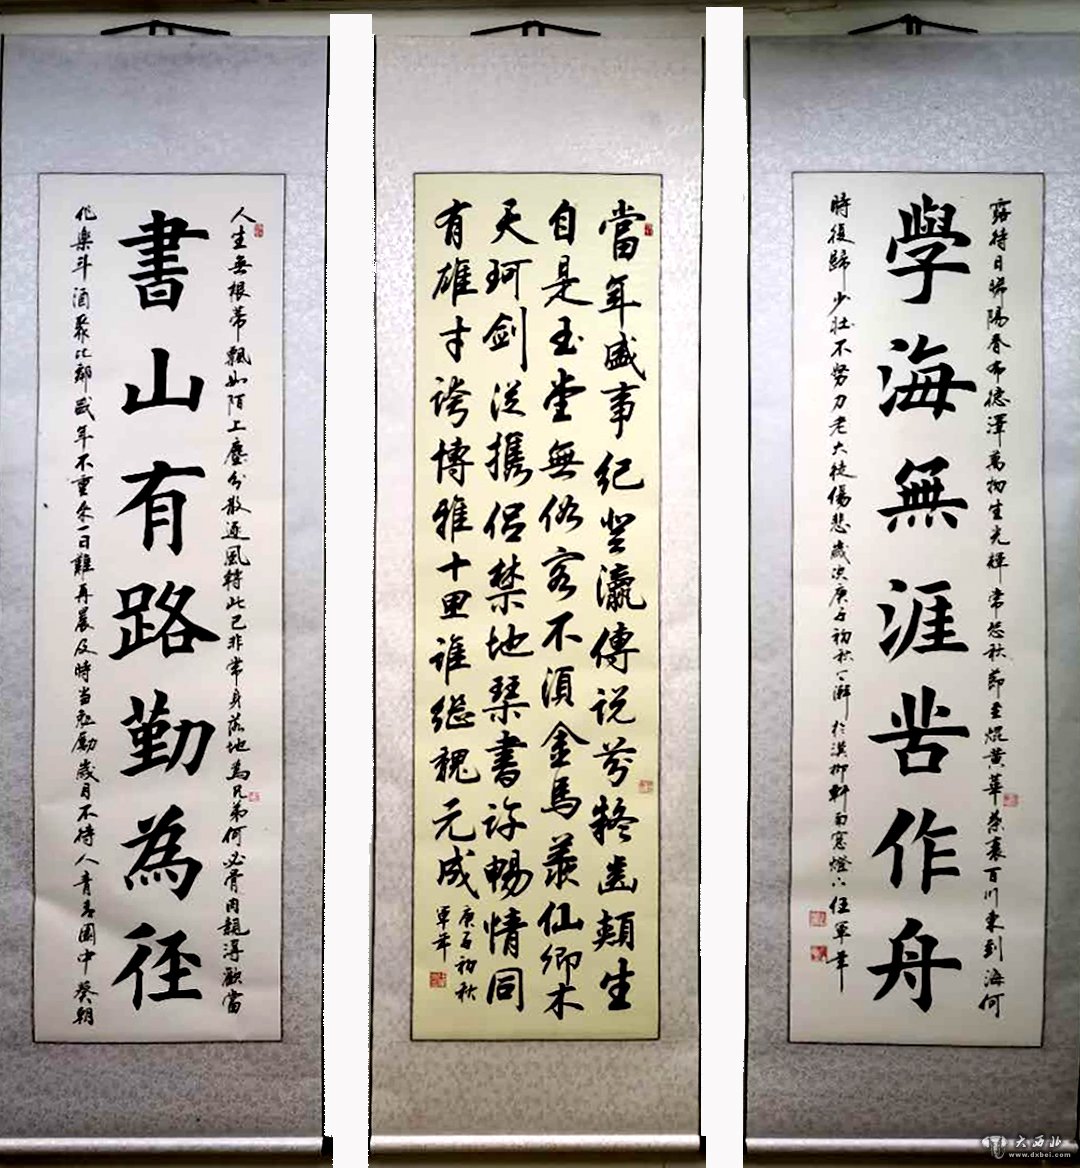 人生無根蒂飄如陌上塵分散逐風轉此已非常身落地為兄弟何必骨肉親得歡當
書山有路勤為徑
作樂斗酒聚比鄰盛年不重来一日難再晨及時当勉勵歲月不待人青青園中葵朝
當年盛事紀登瀛傳说芬猶齒頰生
自是玉堂無俗客不須金馬羨仙卿木
天珂劍從携侣禁地琴書許暢情同
有雄才誇博雅十思誰繼魏元成
庚子初秋
軍年
露待日晞陽春布德澤萬物生光輝常恐秋節至焜黄華葉衰百川東到海何
學海無涯苦作舟
時復歸少壮不努力老大徒傷悲歲次庚子初秋於漢柳軒雨窓燈下任軍年
大西北
www.dxbei.com